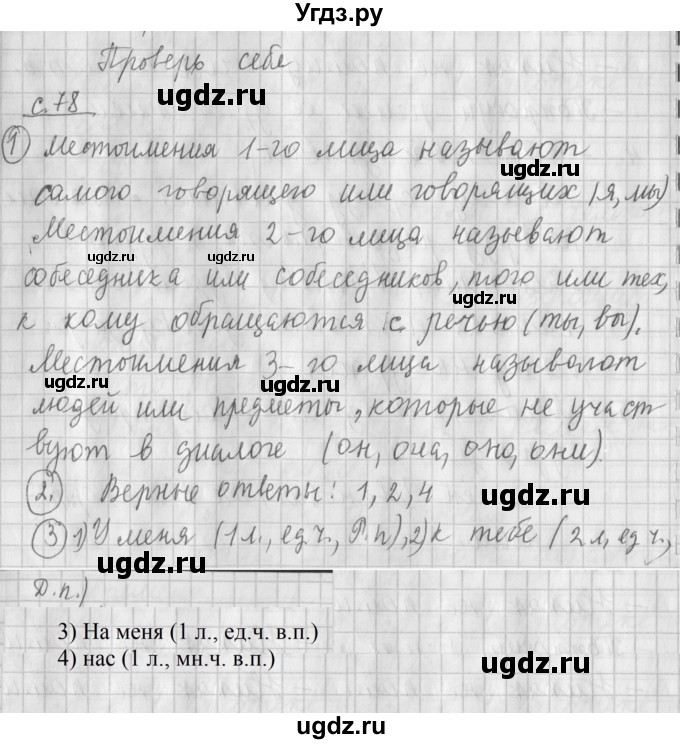 Угдз.ру
Проверь себе
с. 78
1 Местоимения 1-го лица называют
самого говорящего или говорящих (я, мы)
Местоимения 2-го лица называют
собеседника или собеседников, того или тех,
к кому обращаются с речью (ты, вы).
Местоимения 3-го лица называют
людей или предметы, которые не участ
вуют в диалоге (он, она, оно, они).
2. Верные ответы: 1, 2, 4
3 1) У меня (1 л., ед.ч., Р.п), 2) к тебе (2 л, ед ч.,
Д.п.)
3) На меня (1 л., ед.ч. в.п.)
4) нас (1 л., мн.ч. в.п.)
ugdz.ru
ugdz.ru
ugdz.ru
ugdz.ru
ugdz.ru
ugdz.ru
ugdz.ru
ugdz.ru
ugdz.ru
ugdz.ru
ugdz.ru
ugdz.ru